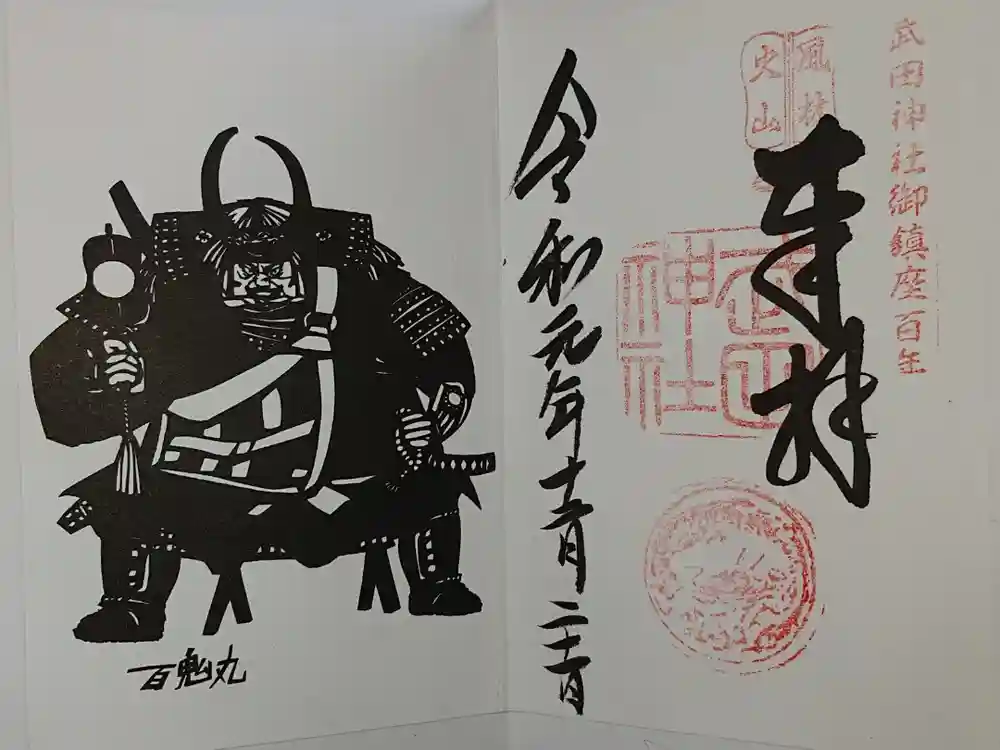 武田神社御鎮座百年
風林
火山
奉拝
武田
神社
令和元年十一月二十一日
百鬼丸